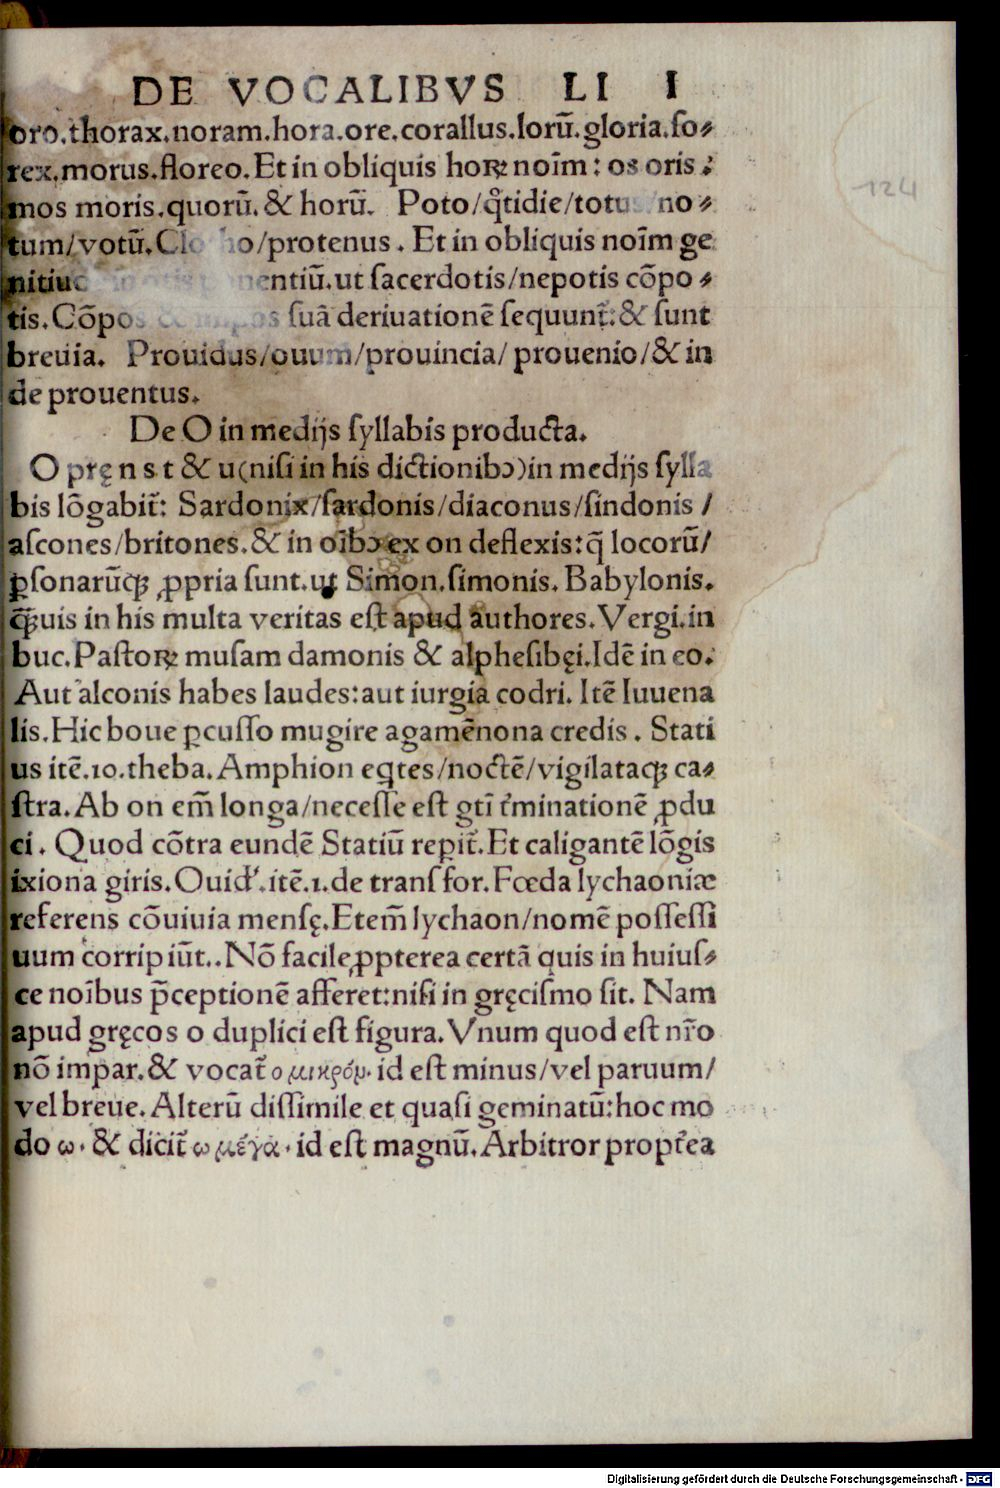 DE VOCALIBVS LI I
oro.thorax.noram.hora.ore.corallus.lorū.gloria.ſo⸗
rex.morus.floreo.Et in obliquis hoꝝ noīm: os oris:
mos moris.quorū.& horū. Poto/q̄tidie/totus/no⸗
tum/votū. /protenus. Et in obliquis noīm ge
nitiuo in otis ponentiū.ut ſacerdotis/nepotis cōpo⸗
tis.Cōpos & impos ſuā deriuationē ſequunt̄:& ſunt
breuia. Prouidus/ouum/prouincia/prouenio/& in
de prouentus.
De O in medijs ſyllabis producta.
O pręn s t & u(niſi in his dictionibꝰ)in medijs ſylla
bis lōgabit̄: Sardonix/ſardonis/diaconus/ſindonis/
aſcones/britones.& in oībꝰ ex on deflexis:q̄ locorū/
ꝑſonarūqꝫ ꝓpria ſunt.ut Simon.ſimonis. Babylonis.
q̄ꝫuis in his multa veritas eſt apud authores.Vergi.in
buc.Paſtoꝝ muſam damonis & alpheſibęi.Idē in eo.
Aut alconis habes laudes:aut iurgia codri. Itē Iuuena
lis.Hic boue ꝑcuſſo mugire agamēnona credis. Stati
us itē.10.theba.Amphion eqtes/noctē/vigilataqꝫ ca⸗
ſtra.Ab on em̄ longa/neceſſe eſt gtī t̄minationē ꝓdu
ci. Quod cōtra eundē Statiū reꝑit̄.Et caligantē lōgis
ixiona giris.Ouid̓.itē.1.de transfor.Fœda lychaoniæ
referens cōuiuia menſę.Etem̄ lychaon/nomē poſſeſſi
uum corripiūt..Nō facile ꝓpterea certā quis in huiuſ⸗
ce noībus p̄ceptionē afferet:niſi in gręciſmo ſit. Nam
apud gręcos o duplici eſt figura. Vnum quod eſt nr̄o
nō impar.& vocat̄ ο μικρόν. id eſt minus/vel paruum/
vel breue. Alterū diſſimile et quaſi geminatū:hoc mo
do ω. & dicit̄ ω μέγα. id eſt magnū.Arbitror propt̄ea
124
Digitalisierung gefördert durch die Deutsche Forschungsgemeinschaft - DFG